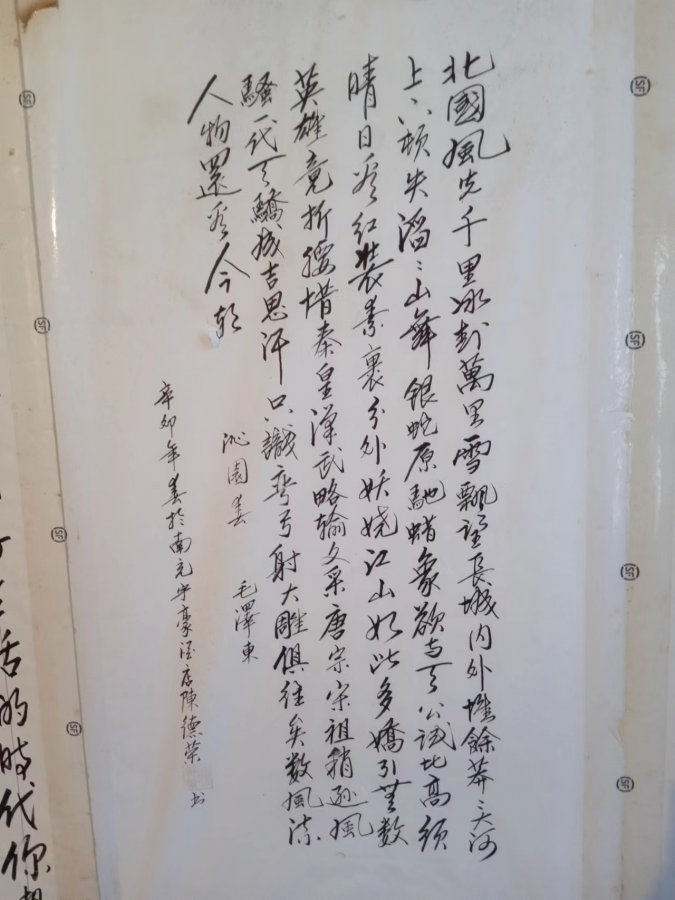 北國風光千里冰封萬里雪飄望長城内外惟餘莽〻大河
上下頓失滔〻山舞銀蛇原馳蜡象欲与天公試比高須
晴日看紅装素裹分外妖娆江山如此多嬌引無数
英雄竟折腰惜秦皇漢武略輸文采唐宗宋祖稍遜風
騷一代天驕成吉思汗只識彎弓射大雕俱往矣数風流
人物還看今朝
沁園春 毛澤東
辛卯年春於南充宇豪酒店陳德荣书
活的時代你